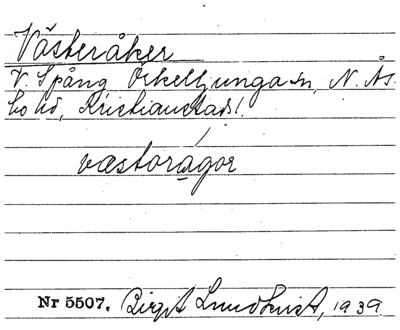 Västeråker
V. Spång Örkelljunga sn, N. Ås-
bo hd, Kristianstads l.
væstorågor
Nr 5507. Birgit Lundkvist, 1939.